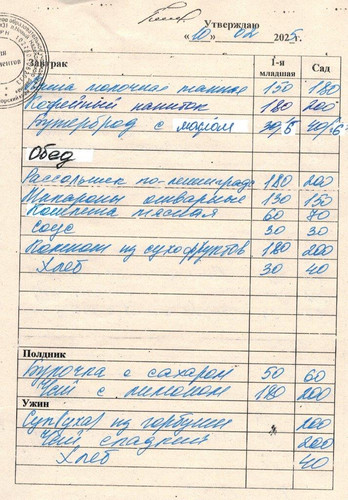 Утверждаю
«10» 02 2025г.
Завтрак 1-я младшая Сад
Каша молочная пшенная 150 180
Кофейный напиток 180 200
Бутерброд с маслом 30/5 40/5
Обед
Рассольник по-ленинградс 180 200
Макароны отварные 130 150
Котлета мясная 60 70
Соус 30 30
Компот из сухофруктов 180 200
Хлеб 30 40
Полдник
Булочка с сахаром 50 60
Чай с лимоном 180 200
Ужин
Суп(уха) из горбуши 200
Чай сладкий 200
Хлеб 40